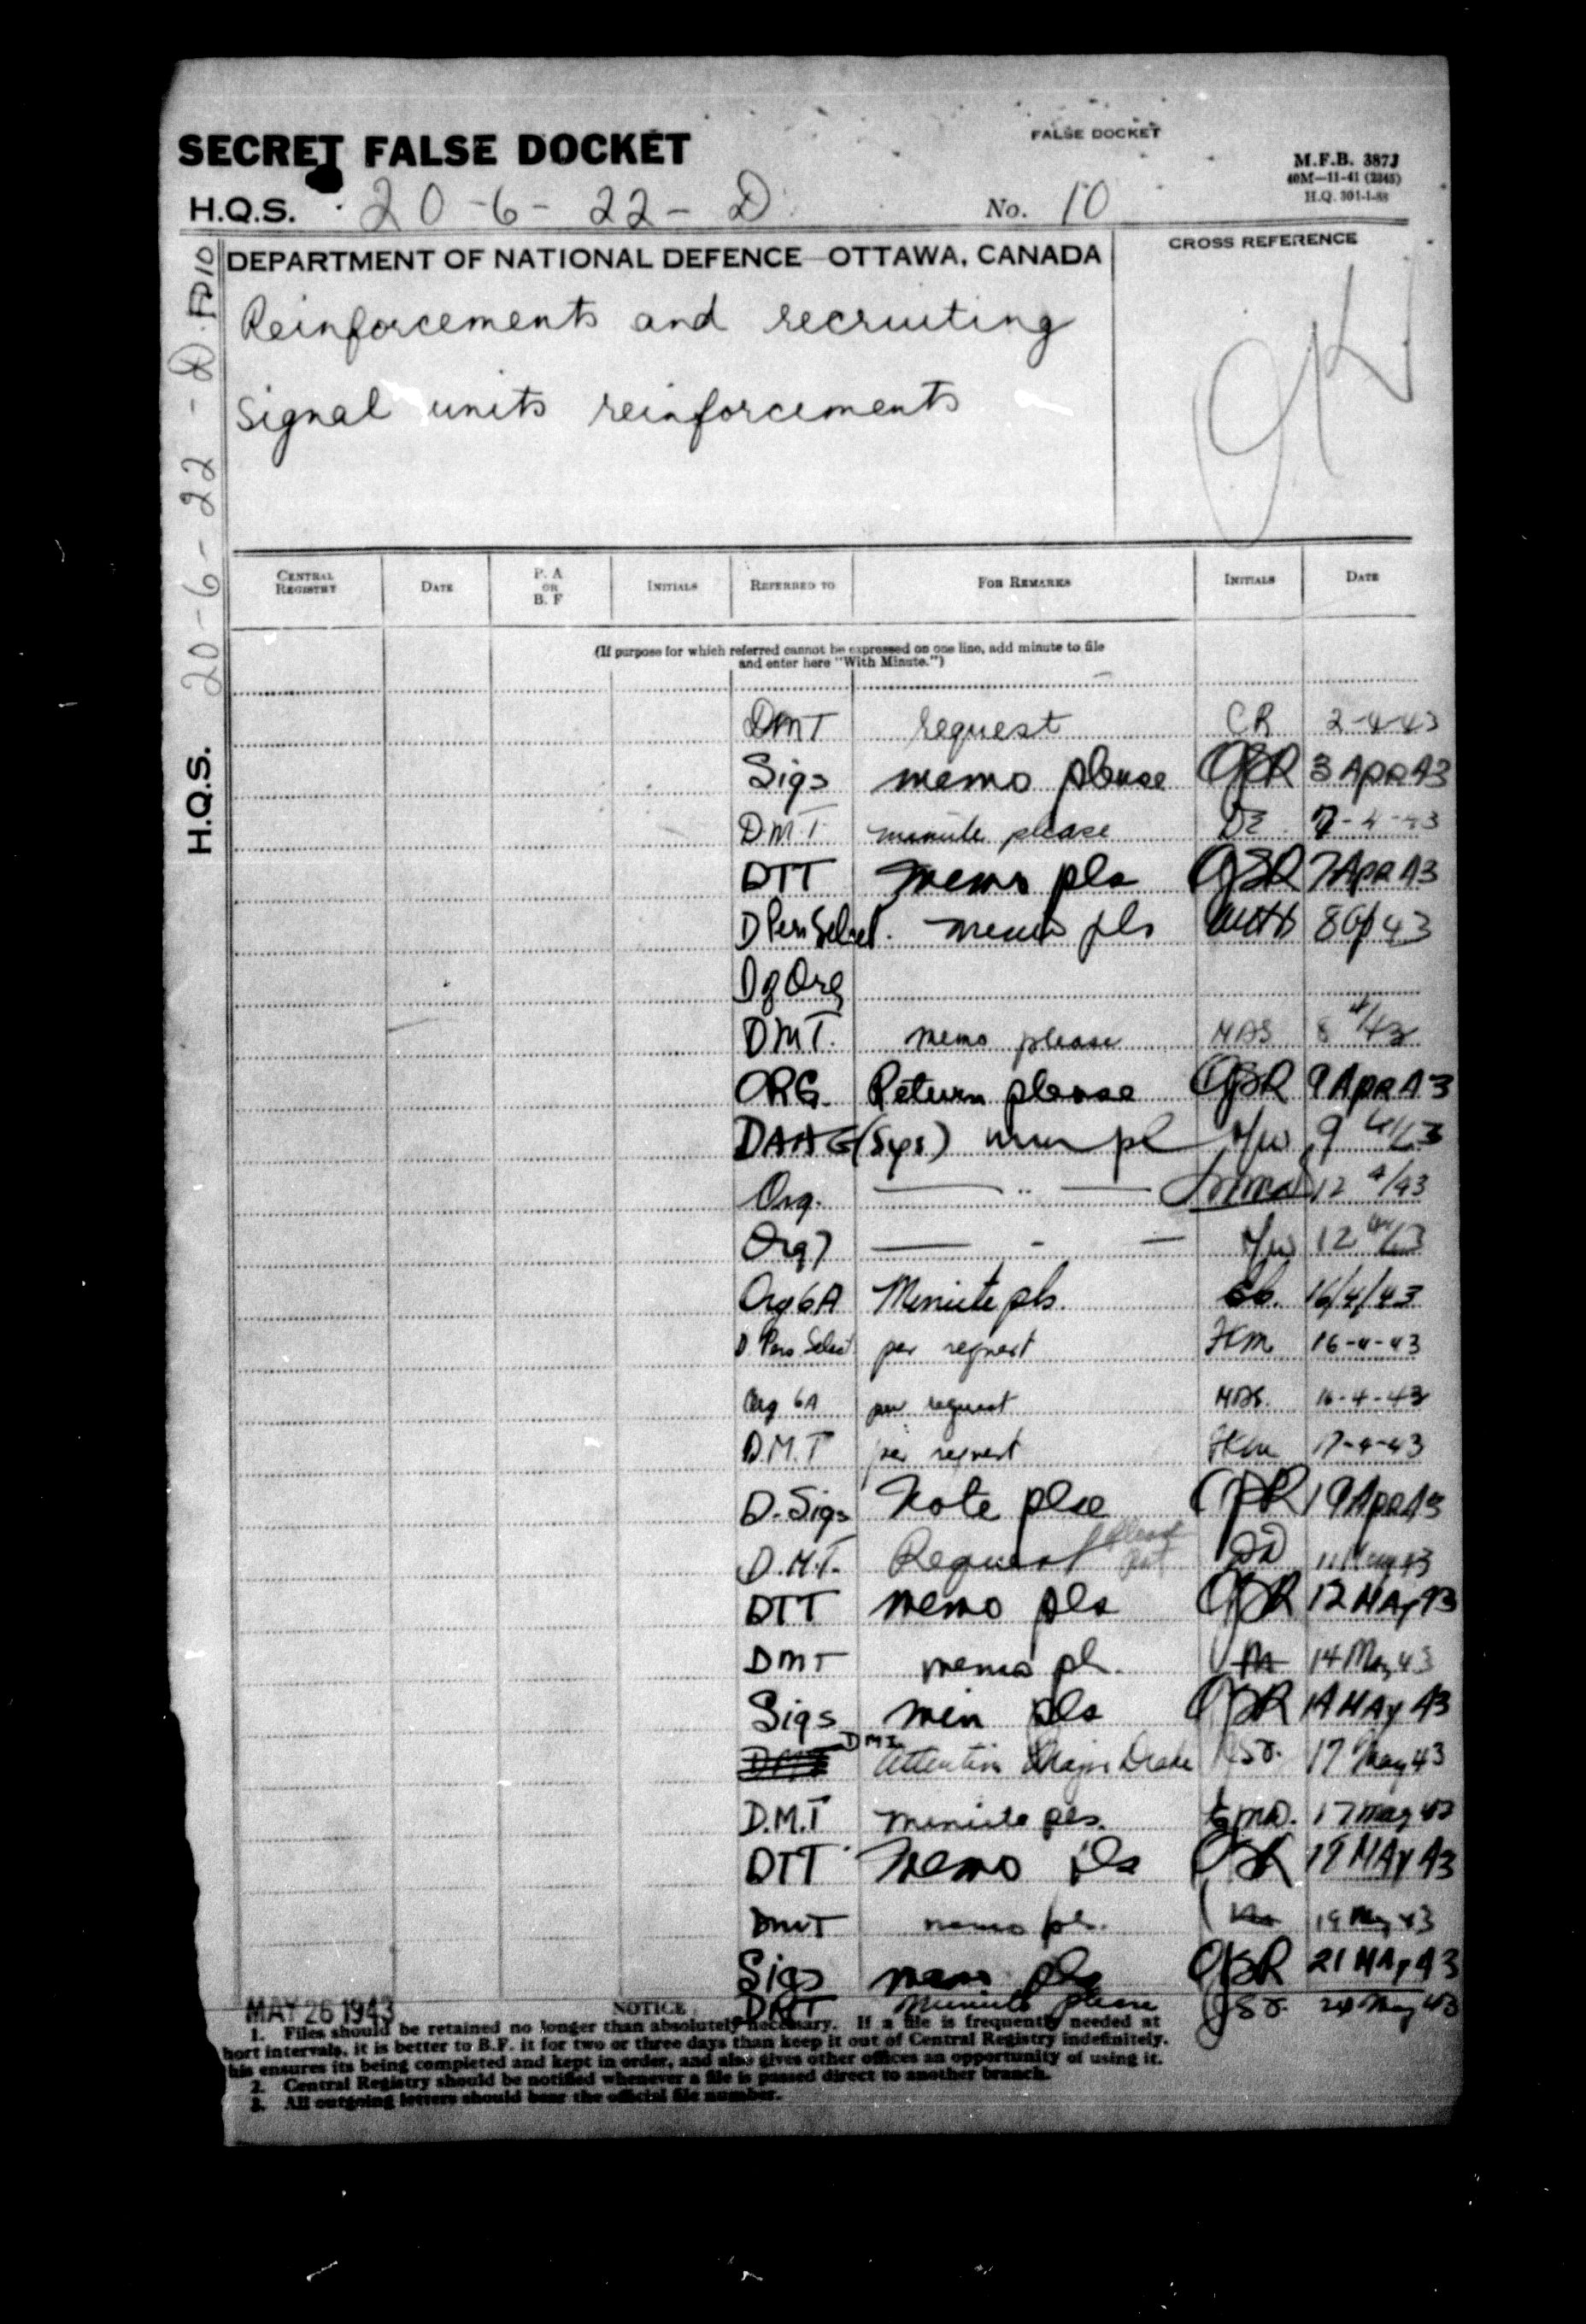 SECRET FALSE DOCKET
FALSE DOCKET
M.F.B. 387J
40M—11-41 (2345)
H.Q. 301-1-88
H.Q.S. 20-6-22-D No. 10
H.Q.S. 20-6-22-D. FD10
DEPARTMENT OF NATIONAL DEFENCE OTTAWA, CANADA
CROSS REFERENCE
Reinforcements and recruiting
Signal units reinforcements
CENTRAL REGISTRY DATE P. A OR B. F INITIALS REFERRED TO FOR REMARKS INITIALS DATE
(If purpose for which referred cannot be expressed on one line, add minute to file
and enter here "With Minute.")
DMT request CR 2-4-43
Sigs memo please 3 APR 43
D.M.T. minute please DE 7-4-43
DTT memo pls 7 APR 43
D Pers Select. memo pls 8 43
D of Org
DMT. memo please MAS 8 4/43
ORG. Return please 9 APR 43
DAAG (Sigs) 9 4/43
Org. 12 4/43
Org 7 12 4/43
Org 6A Minute pls. 16/4/43
D. Pers. Select per request 16-4-43
Org 6A per request MAS. 16-4-43
D.M.T per request 17-4-43
D. Sigs Note plse 19 APR 43
D.M.T. Request please 11 May 43
DTT memo pls 12 MAY 43
DMT memo pl. 14 May 43
Sigs min pls 14 MAY 43
DMI Attention Major Drake 17 May 43
D.M.T minute pls. 17 May 43
DTT memo pls 18 MAY 43
DMT memo pl. 19 May 43
Sigs memo pls 21 MAY 43
DMT minute please 24 May 43
MAY 26 1943
NOTICE
1. Files should be retained no longer than absolutely necessary. If a file is frequently needed at
hort intervals, it is better to B.F. it for two or three days than keep it out of Central Registry indefinitely.
his ensures its being completed and kept in order, and also gives other offices an opportunity of using it.
2. Central Registry should be notified whenever a file is passed direct to another branch.
3. All outgoing letters should bear the official file number.